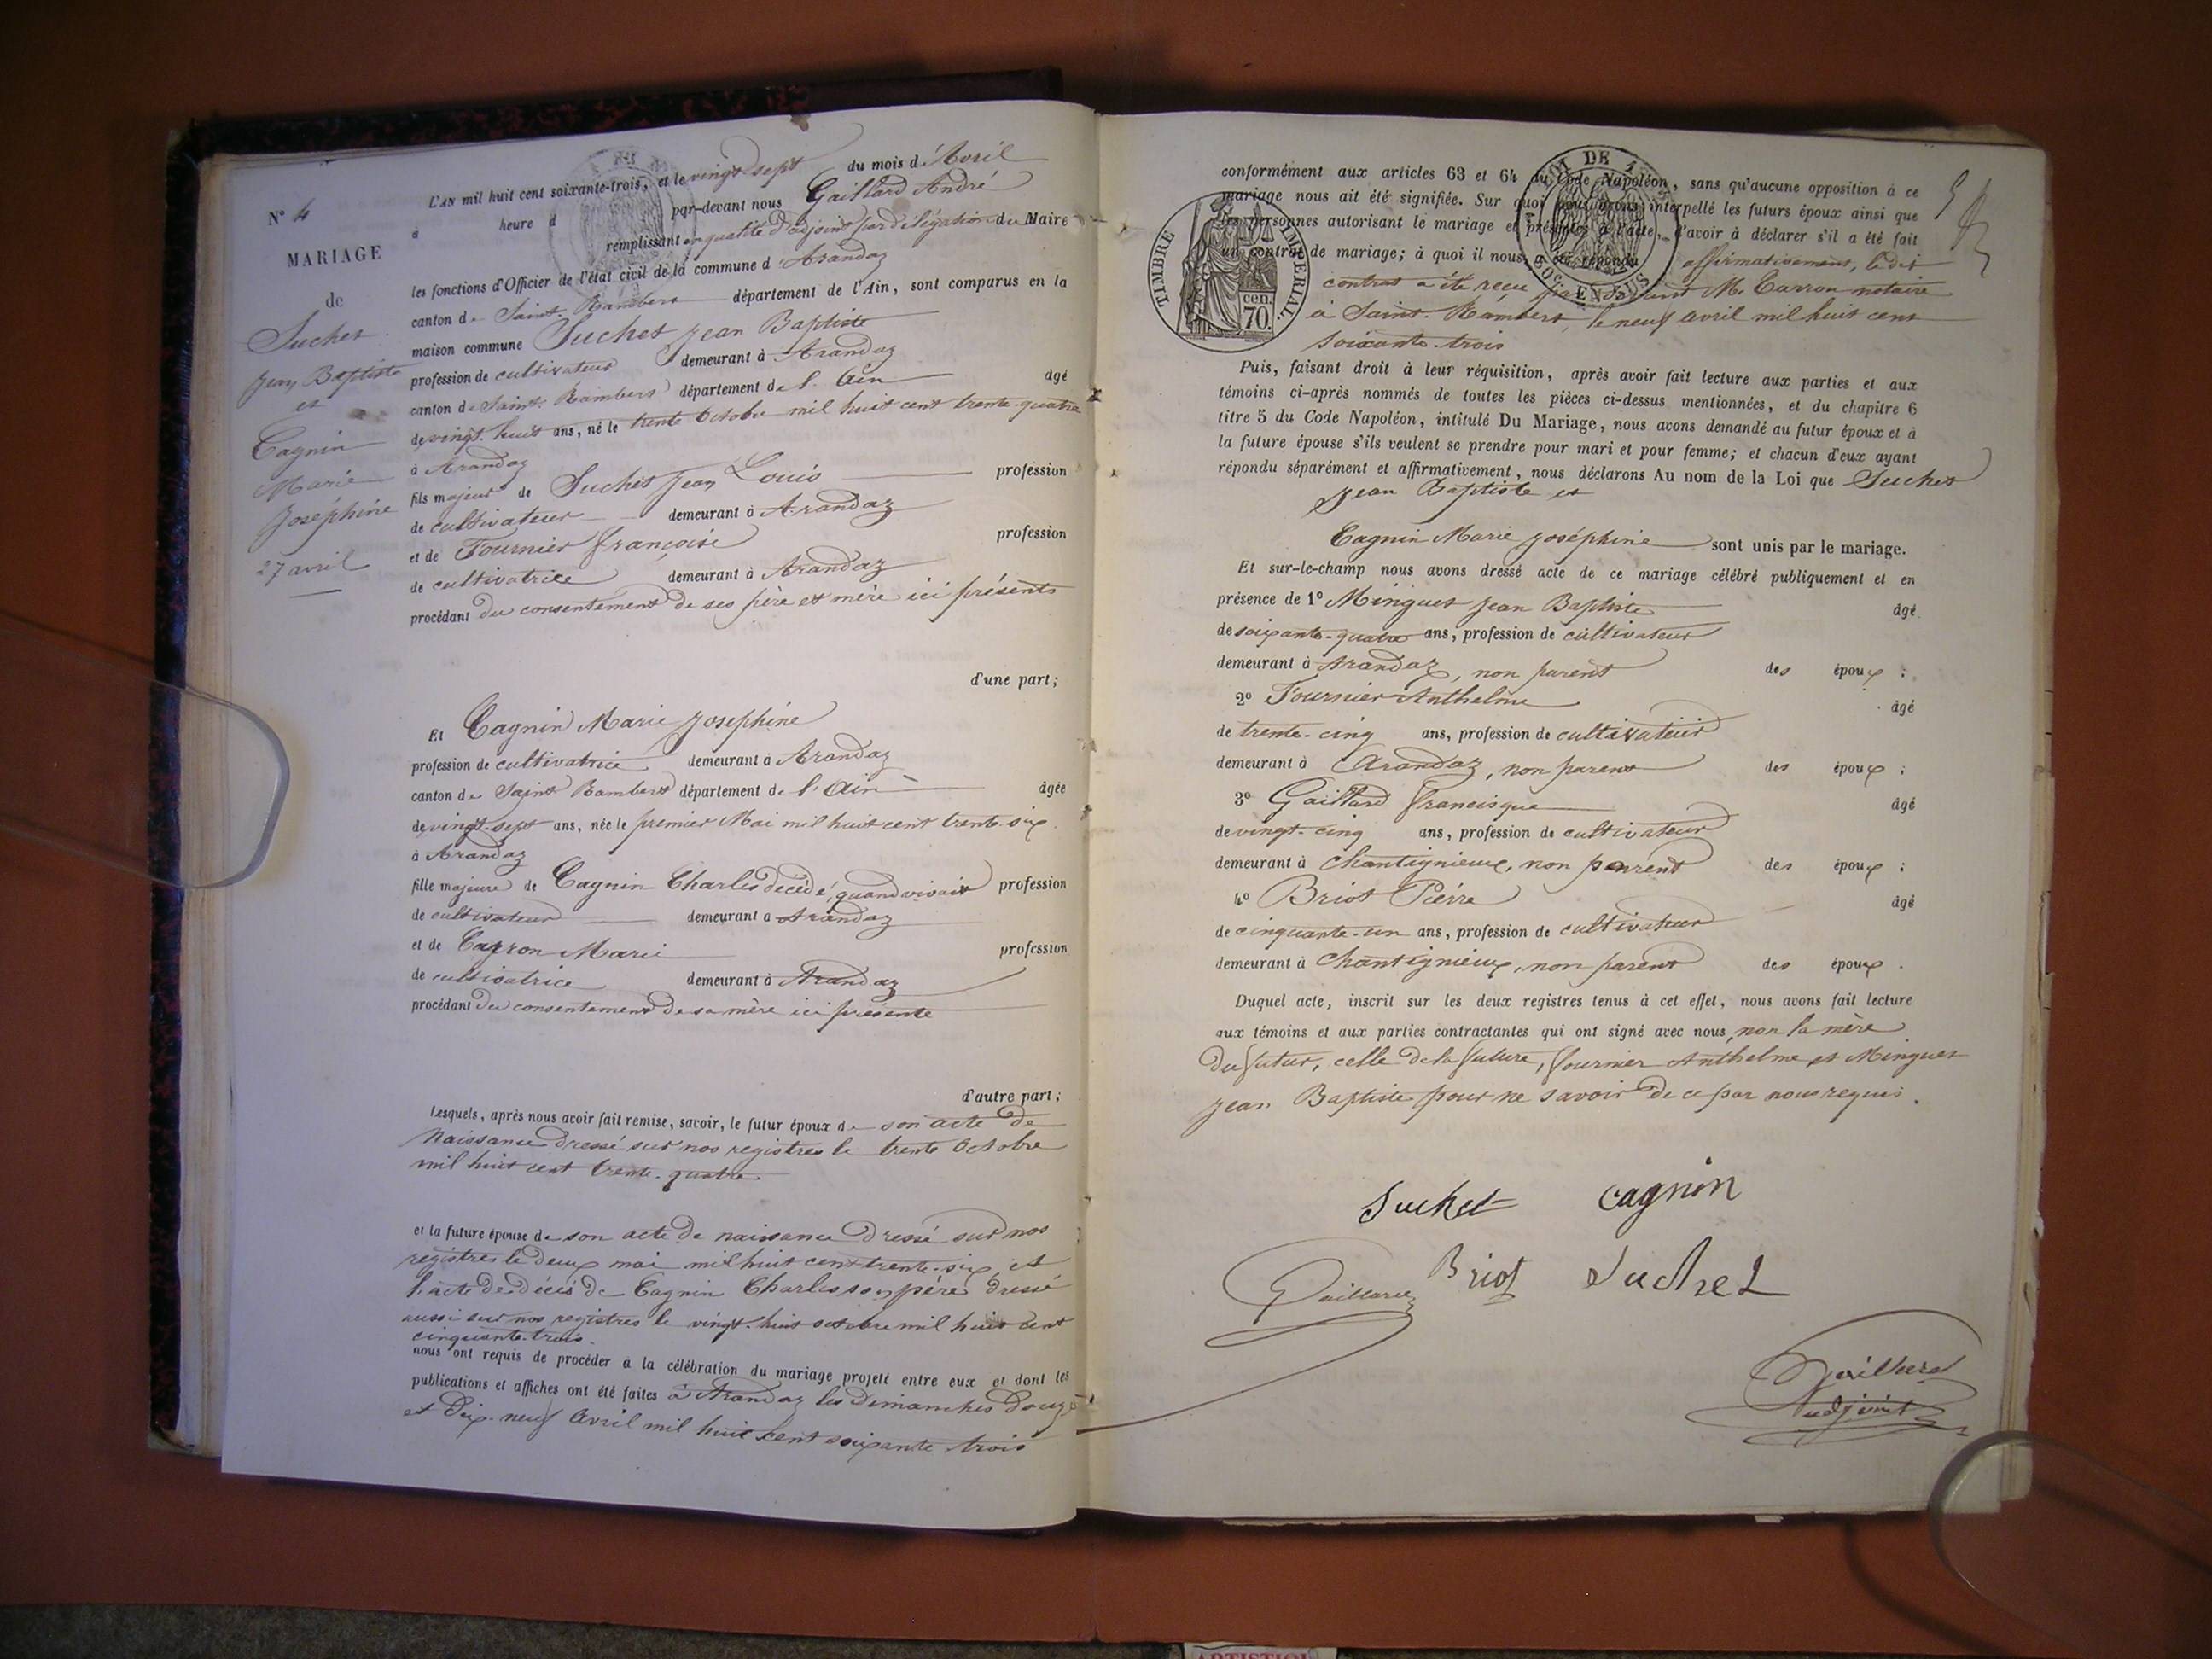 N° 4
MARIAGE
de
Suchet
Jean Baptiste
et
Cagnin
Marie
Joséphine
27 avril
L'AN mil huit cent soixante-trois, et le vingt-sept du mois d'Avril
à heure d par-devant nous Gaillard André
remplissant en qualité d'adjoint par délégation du Maire
les fonctions d'Officier de l'état civil de la commune d'Arandaz
canton de Saint-Rambert département de l'Ain, sont comparus en la
maison commune Suchet Jean Baptiste
profession de cultivateur demeurant à Arandaz
canton de Saint-Rambert département de l'Ain âgé
de vingt-huit ans, né le trente Octobre mil huit cent trente-quatre
à Arandaz
fils majeur de Suchet Jean Louis profession
de cultivateur demeurant à Arandaz
et de Fournier Françoise profession
de cultivatrice demeurant à Arandaz
procédant du consentement de ses père et mère ici présents
d'une part;
Et Cagnin Marie Joséphine
profession de cultivatrice demeurant à Arandaz
canton de Saint Rambert département de l'Ain âgée
de vingt-sept ans, née le premier Mai mil huit cent trente-six
à Arandaz
fille majeure de Cagnin Charles décédé, quand vivait profession
de cultivateur demeurant à Arandaz
et de Carron Marie profession
de cultivatrice demeurant à Arandaz
procédant du consentement de sa mère ici présente
d'autre part;
Lesquels, après nous avoir fait remise, savoir, le futur époux de son acte de
Naissance dressé sur nos registres le trente Octobre
mil huit cent trente-quatre
et la future épouse de son acte de naissance dressé sur nos
registres le deux mai mil huit cent trente-six, et
l'acte de décès de Cagnin Charles son père dressé
aussi sur nos registres le vingt-huit octobre mil huit cent
cinquante-trois.
nous ont requis de procéder à la célébration du mariage projeté entre eux et dont les
publications et affiches ont été faites à Arandaz les Dimanches Douze
et Dix-neuf Avril mil huit cent soixante trois
conformément aux articles 63 et 64 du Code Napoléon, sans qu'aucune opposition à ce
mariage nous ait été signifiée. Sur quoi nous avons interpellé les futurs époux ainsi que
les personnes autorisant le mariage et présentes à l'acte, d'avoir à déclarer s'il a été fait
un contrat de mariage; à quoi il nous a été répondu affirmativement, ledit
contrat a été reçu par devant Me Carron notaire
à Saint-Rambert, le neuf avril mil huit cent
soixante-trois
TIMBRE IMPÉRIAL
cen.
70.
50c. EN SUS
Puis, faisant droit à leur réquisition, après avoir fait lecture aux parties et aux
témoins ci-après nommés de toutes les pièces ci-dessus mentionnées, et du chapitre 6
titre 5 du Code Napoléon, intitulé Du Mariage, nous avons demandé au futur époux et à
la future épouse s'ils veulent se prendre pour mari et pour femme; et chacun d'eux ayant
répondu séparément et affirmativement, nous déclarons Au nom de la Loi que Suchet
Jean Baptiste et
Cagnin Marie Joséphine sont unis par le mariage.
Et sur-le-champ nous avons dressé acte de ce mariage célébré publiquement et en
présence de 1° Minguet Jean Baptiste âgé
de soixante-quatre ans, profession de cultivateur
demeurant à Arandaz, non parent des époux;
2° Fournier Anthelme âgé
de trente-cinq ans, profession de cultivateur
demeurant à Arandaz, non parent des époux;
3° Gaillard Francisque âgé
de vingt-cinq ans, profession de cultivateur
demeurant à Chantignieux, non parent des époux;
4° Briot Pierre âgé
de cinquante-un ans, profession de cultivateur
demeurant à Chantignieux, non parent des époux.
Duquel acte, inscrit sur les deux registres tenus à cet effet, nous avons fait lecture
aux témoins et aux parties contractantes qui ont signé avec nous, non la mère
du futur, celle de la future, Fournier Anthelme et Minguet
Jean Baptiste pour ne savoir de ce par nous requis.
Suchet Cagnin
Gaillard Briot Suchet
Gaillard
adjoint